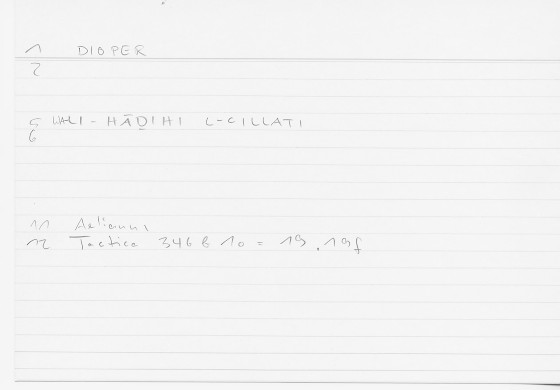 1 DIOPER
2
5 WALI-HĀḎIHI L-CILLATI
6
11 Aelianus
12 Tactica 346 b 10 = 19.19f